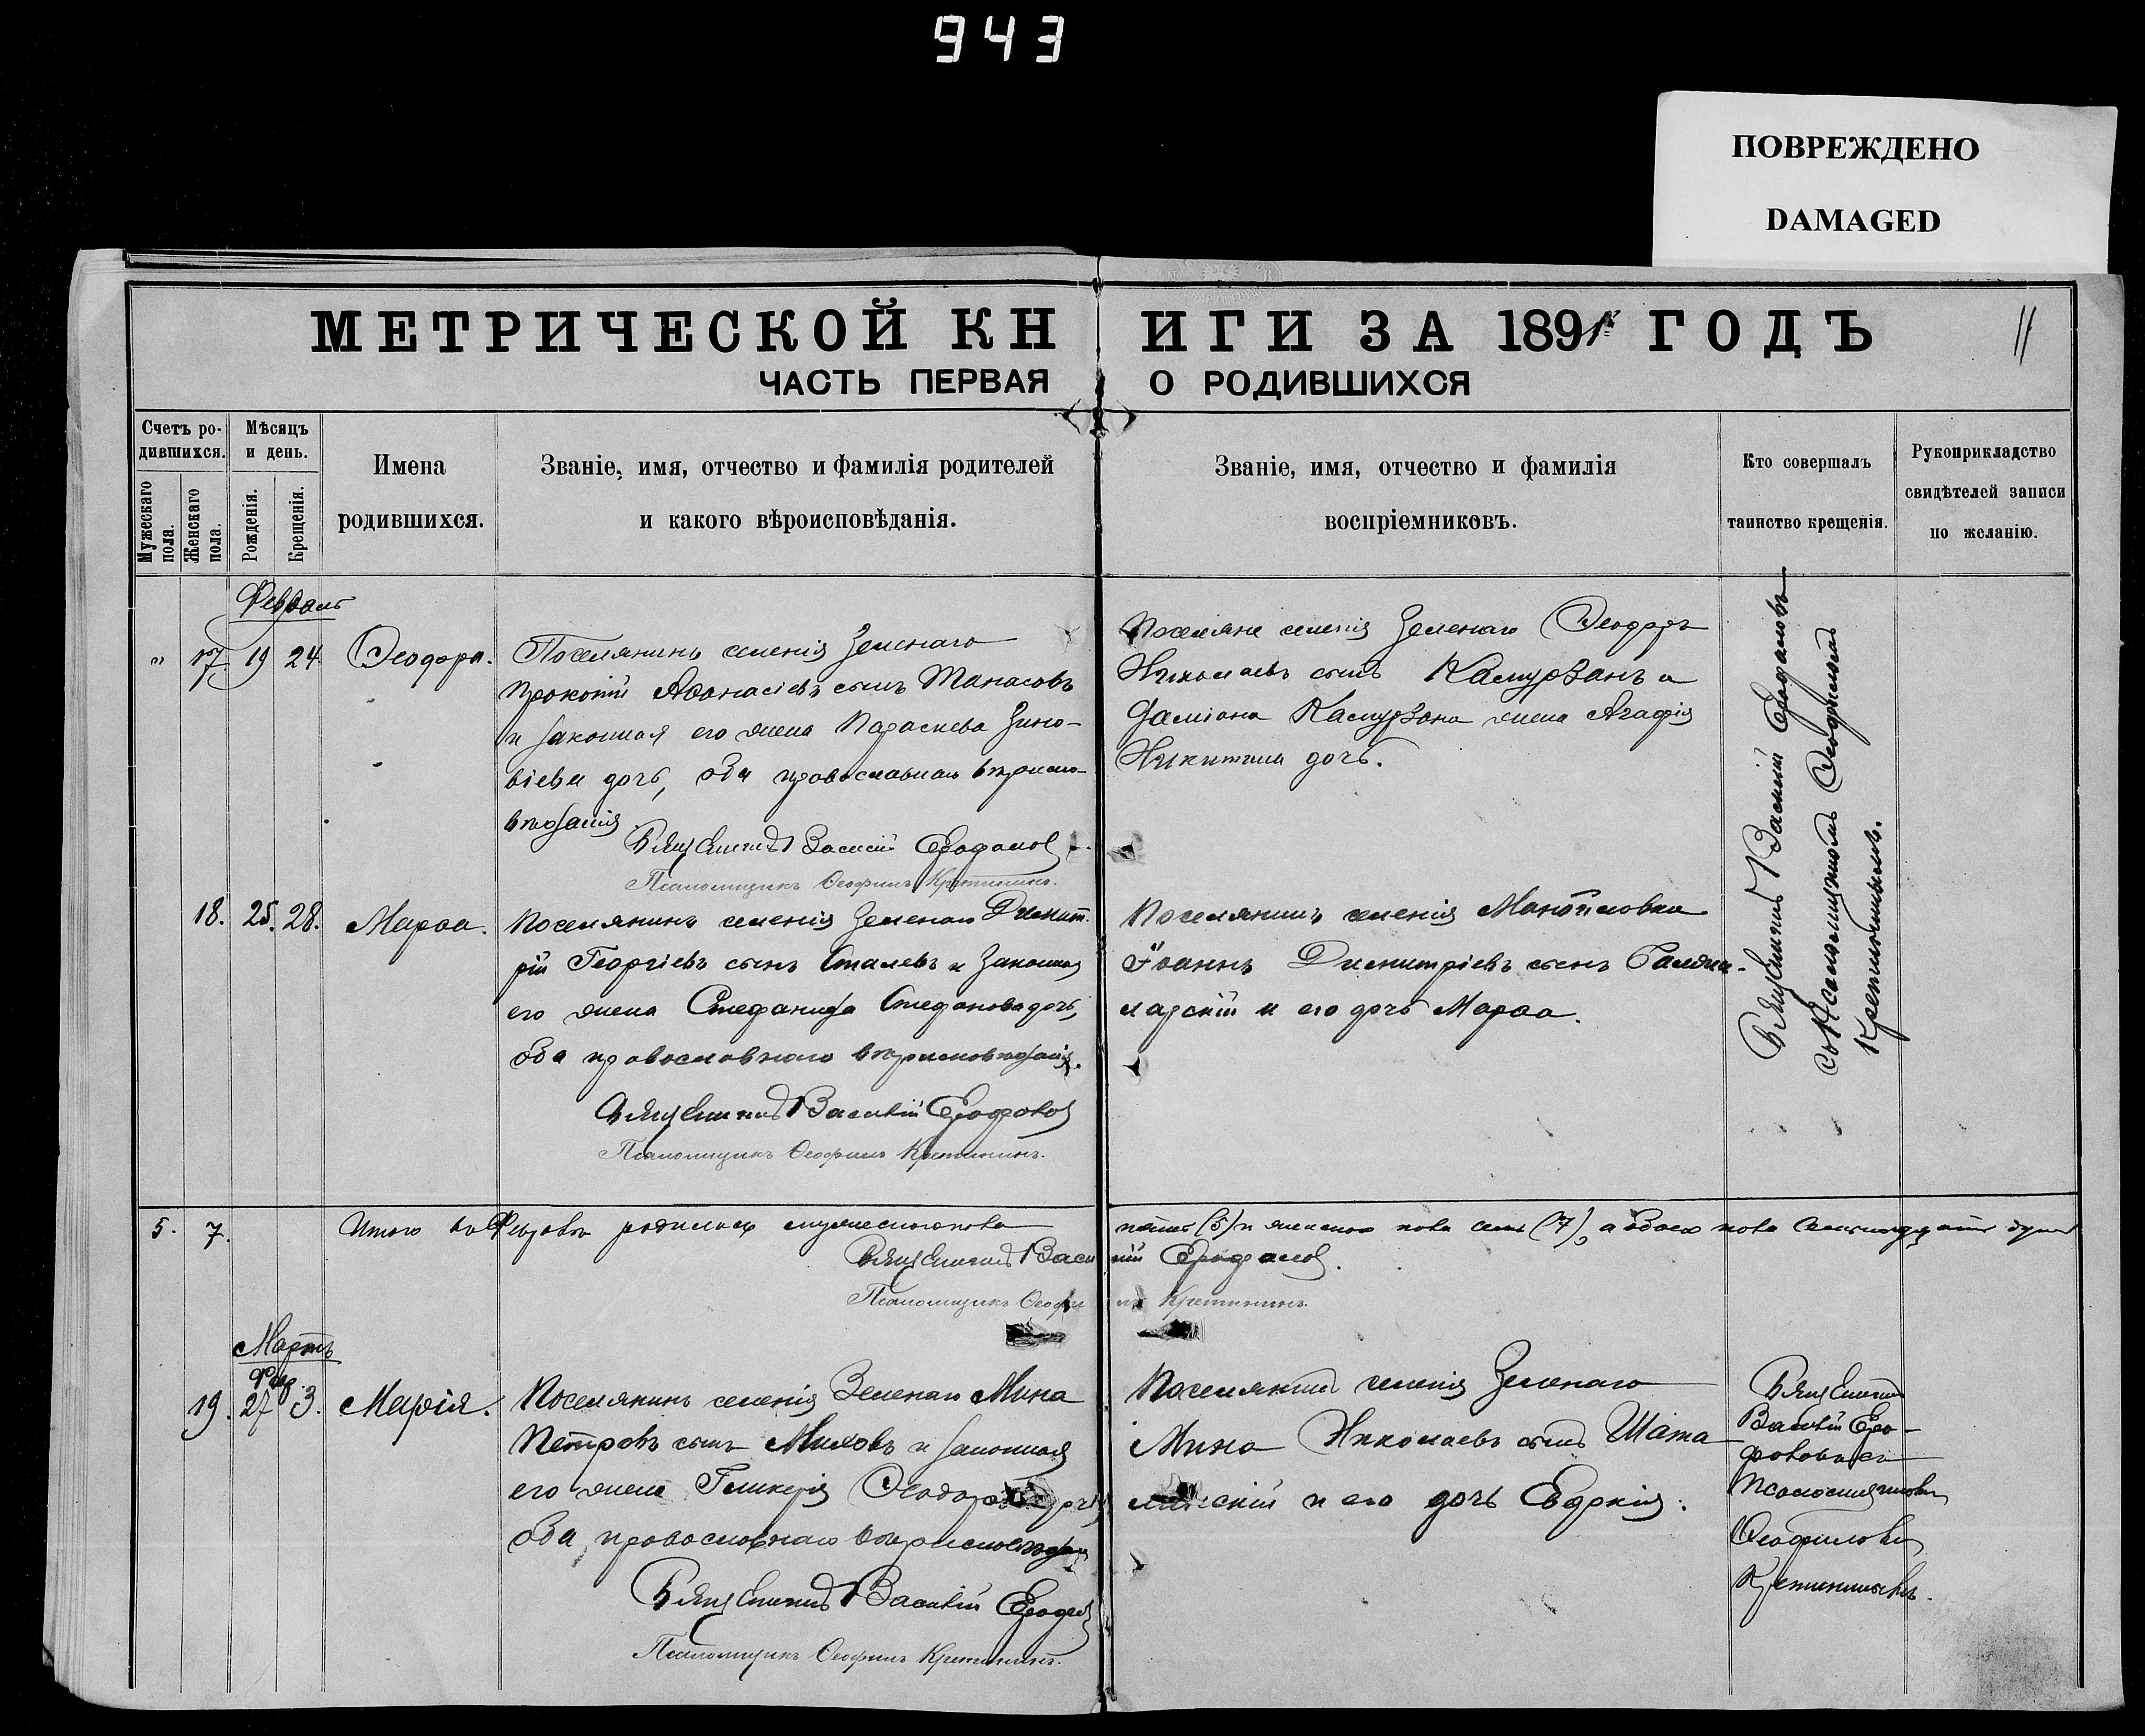 943
ПОВРЕЖДЕНО
DAMAGED
МЕТРИЧЕСКОЙ КНИГИ ЗА 1891 ГОДЪ
11
ЧАСТЬ ПЕРВАЯ О РОДИВШИХСЯ
Счетъ ро-
дившихся.
Мужескаго
пола.
Женскаго
пола.
Мѣсяцъ
и день.
Рожденія.
Крещенія.
Имена
родившихся.
Званіе, имя, отчество и фамилія родителей
и какого вѣроисповѣданія.
Званіе, имя, отчество и фамилія
воспріемниковъ.
Кто совершалъ
таинство крещенія.
Рукоприкладство
свидѣтелей записи
по желанію.
Февраль
" 17. 19 24 Ѳеодора.
Поселянинъ селенія Зеленаго
Прокопій Аѳанасіевъ сынъ Танасовъ
и законная его жена Параскева Зино-
віева дочь, оба православнаго вѣроиспо-
вѣданія
Священникъ Василій
Псаломщикъ Ѳеофилъ Кретининъ.
Поселяне селенія Зеленаго Ѳеодоръ
Николаевъ сынъ Камурзанъ и
Даміана Камурзана жена Агафія
Никитина дочь.
Священникъ Василій
съ Псаломщикомъ Ѳеофиломъ
Кретининымъ.
18. 25. 28. Марѳа.
Поселянинъ селенія Зеленаго Димит-
рій Георгіевъ сынъ Сталевъ и законная
его жена Стефанида Стефанова дочь,
оба православнаго вѣроисповѣданія.
Священникъ Василій
Псаломщикъ Ѳеофилъ Кретининъ.
Поселянинъ селенія
Іоаннъ Димитріевъ сынъ
и его дочь Марѳа.
5. 7. Итого въ Февралѣ родилось мужескаго пола пять (5) и женскаго пола семь (7), а обоего пола душъ
Священникъ Василій
Псаломщикъ Ѳеофилъ Кретининъ.
Мартъ
Фев.
19. 27 3. Марія.
Поселянинъ селенія Зеленаго Мина
Петровъ сынъ Миховъ и законная
его жена Гликерія дочь,
оба православнаго вѣроисповѣданія
Священникъ Василій
Псаломщикъ Ѳеофилъ Кретининъ.
Поселянинъ селенія Зеленаго
Мина Николаевъ сынъ
и его дочь Евдокія.
Священникъ
Василій
съ
Псаломщикомъ
Ѳеофиломъ
Кретининымъ.